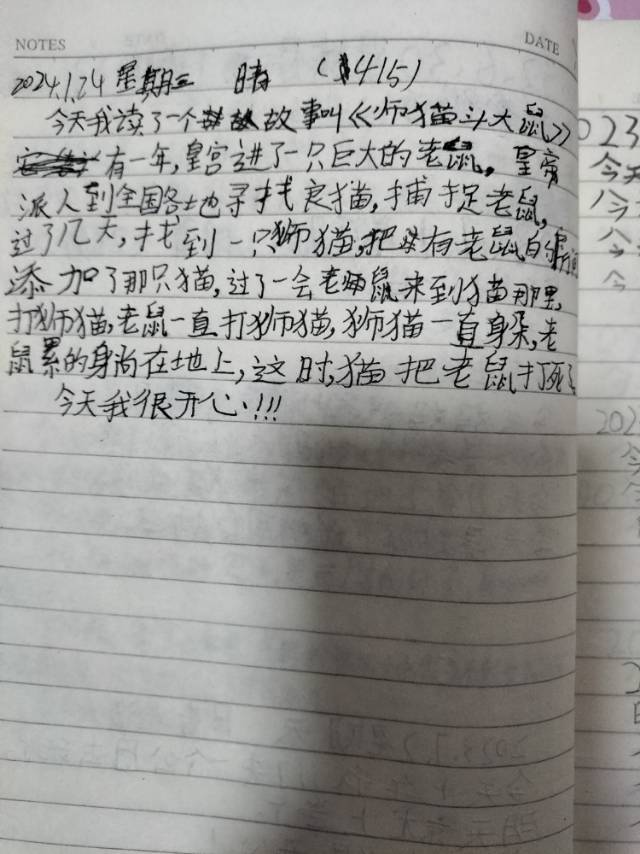 NOTES
DATE
2024.1.24 星期三 晴 ($415)
今天我读了一个故事叫《师猫斗大鼠》
有一年,皇宫进了一只巨大的老鼠,皇帝
派人到全国各地寻找良猫,捕捉老鼠,
过了几天,找到一只狮猫,把有老鼠的房间
添加了那只猫,过了一会老鼠来到猫那里
打狮猫,老鼠一直打狮猫,狮猫一直身朵,老
鼠累的身尚在地上,这时,猫把老鼠打死了
今天我很开心!!!
023
今天
今
202
今
今